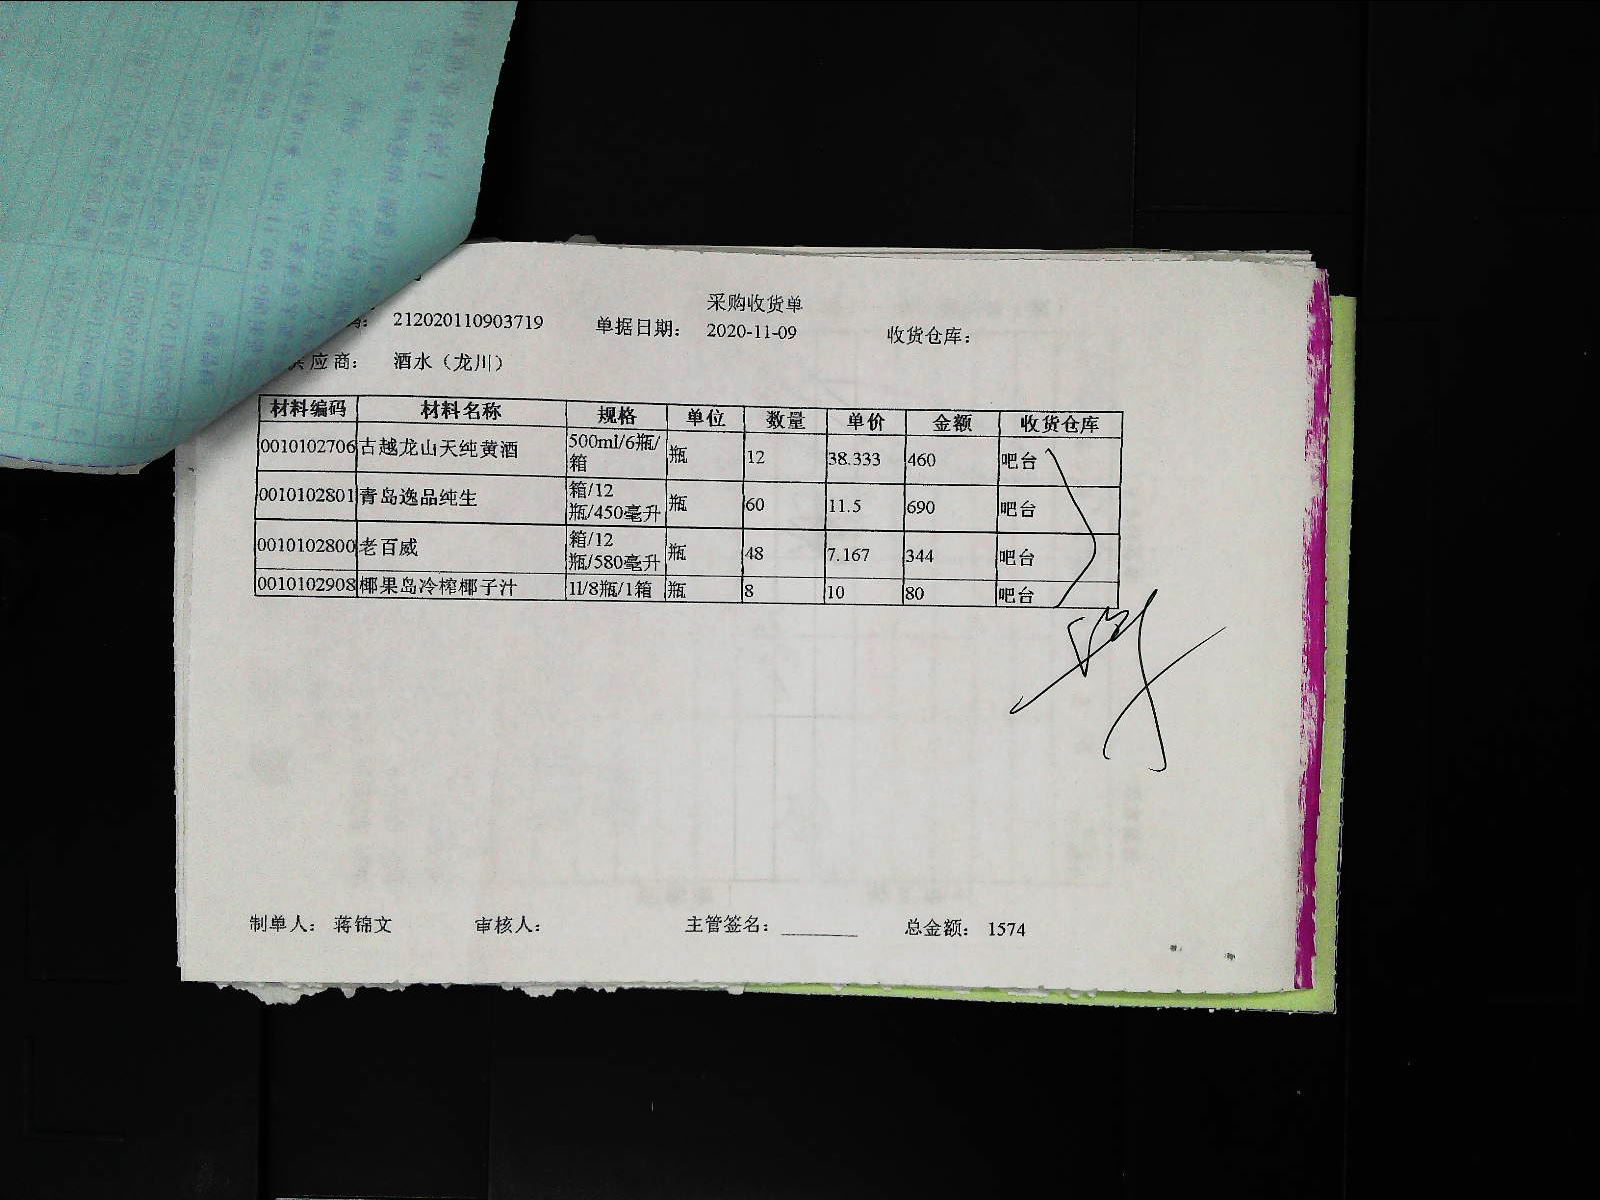 采购收货单
212020110903719 单据日期： 2020-11-09 收货仓库：
应商： 酒水（龙川）
材料编码 材料名称 规格 单位 数量 单价 金额 收货仓库
0010102706 古越龙山天纯黄酒 500ml/6瓶/箱 瓶 12 38.333 460 吧台
0010102801 青岛逸品纯生 箱/12瓶/450毫升 瓶 60 11.5 690 吧台
0010102800 老百威 箱/12瓶/580毫升 瓶 48 7.167 344 吧台
0010102908 椰果岛冷榨椰子汁 1l/8瓶/1箱 瓶 8 10 80 吧台
制单人： 蒋锦文 审核人： 主管签名： ________ 总金额： 1574